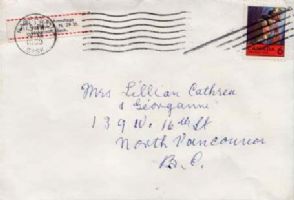 CANADA 6
Mrs Lillian Cathrea
& Georganne
139 W. 16th St
North Vancouver
B.C.